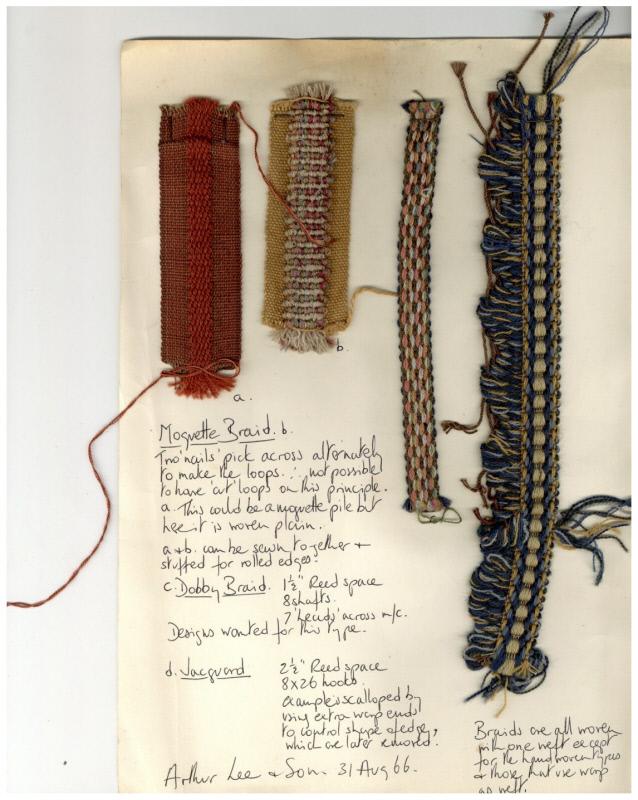 a.
b.
Moquette Braid. b.
Two 'nails' pick across alternately
to make the loops. ∴ not possible
to have 'cut' loops on this principle.
a. This could be a moquette pile but
here it is woven plain.
a & b. can be sewn together &
stuffed for rolled edges.
c. Dobby Braid. 1½" Reed space
8 shafts.
7 'heads' across m/c.
Designs wanted for this type.
d. Jacquard 2½" Reed space
8 x 26 hooks.
example is scalloped by
using extra warp ends
to control shape of edge,
which are later removed.
Arthur Lee & Son. 31 Aug 66.
Braids are all woven
with one weft except
for the hand woven types
& those that use warp
as weft.